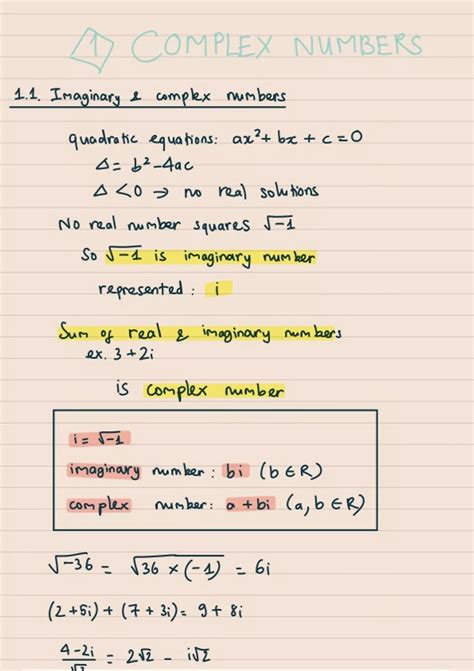 1 COMPLEX NUMBERS
1.1. Imaginary & complex numbers
quadratic equations: ax² + bx + c = 0
Δ = b² - 4ac
Δ < 0 → no real solutions
No real number squares √-1
So √-1 is imaginary number
represented : i
Sum of real & imaginary numbers
ex. 3 + 2i
is complex number
i = √-1
imaginary number : bi (b ∈ R)
complex number : a + bi (a, b ∈ R)
√-36 = √36 × (-1) = 6i
(2 + 5i) + (7 + 3i) = 9 + 8i
4-2i/√2 = 2√2 - i√2